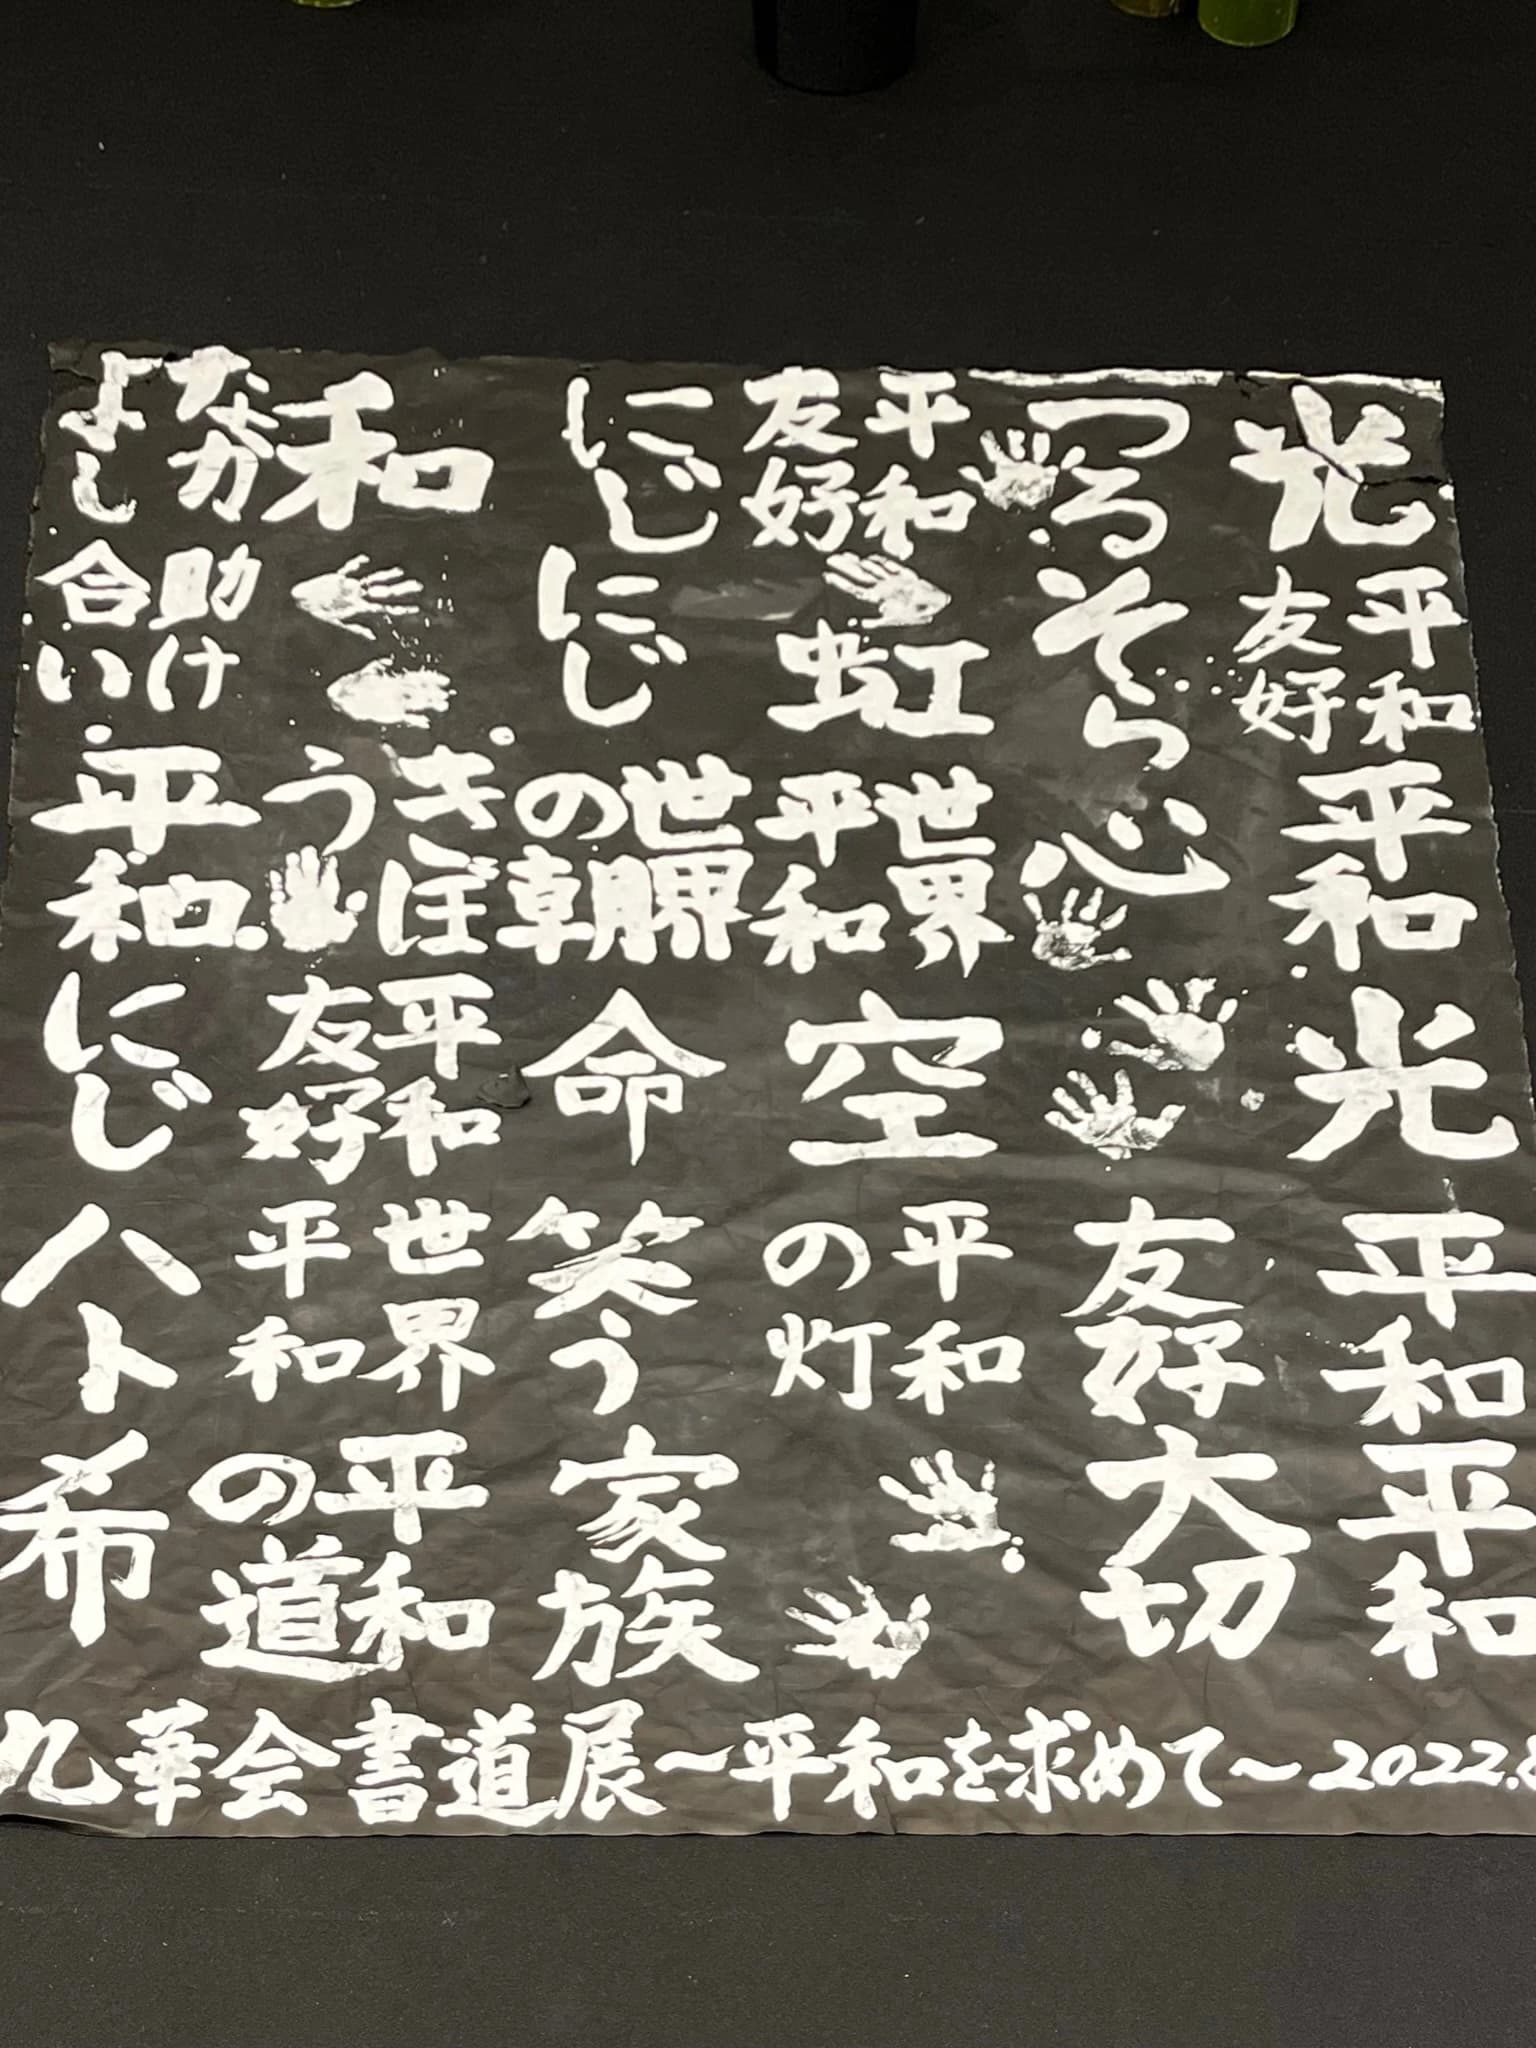 光
平和
友好
平和
光
平和
平和
つる
そら
心
友好
大切
平和
友好
虹
世界
平和
空
平和
の灯
にじ
にじ
世界
の朝
命
笑う
家族
和
きぼ
う
平和
友好
世界
平和
平和
の道
なか
よし
助け
合い
平和
にじ
ハト
希
九華会書道展〜平和を求めて〜2022.